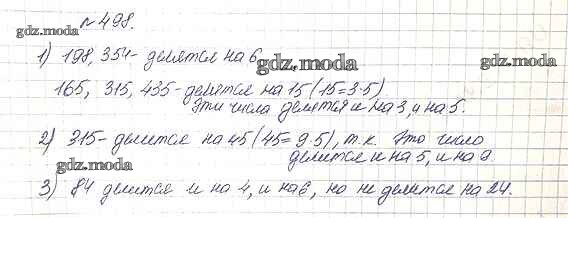 №498.
gdz.moda
1) 198, 354- делятся на 6
gdz.moda
gdz.moda
165, 315, 435- делятся на 15 (15=3·5)
Эти числа делятся и на 3, и на 5.
2) 315- делится на 45 (45= 9·5), т.к. это число
делится и на 5, и на 9.
gdz.moda
3) 84 делится и на 4, и на 6, но не делится на 24.